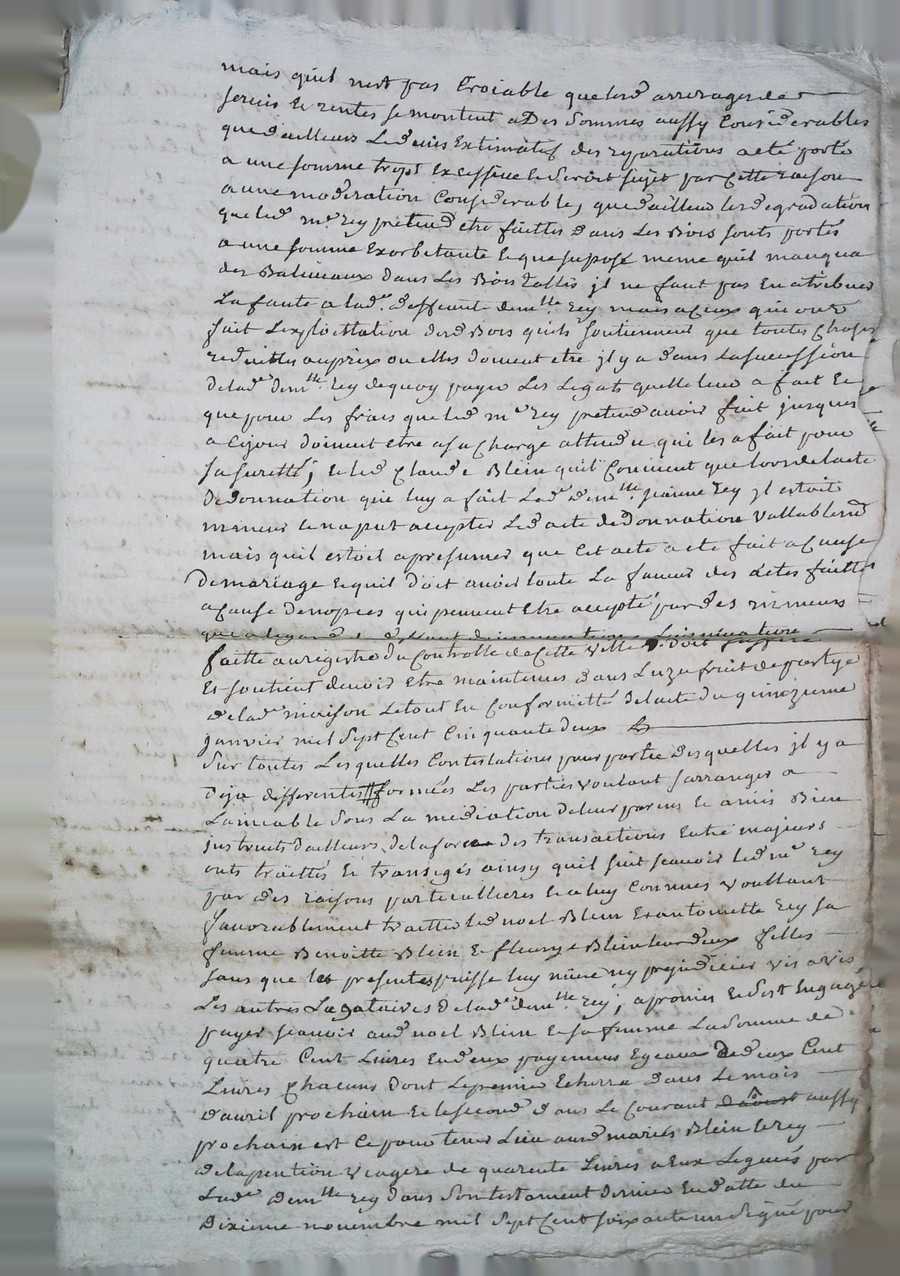 mais quil nest pas Croiable que lesd arrerages de
servis et rentes se montent a Des sommes aussy Considerables
que dailleurs Led devis Extimatif des reparations a eté porté
a une somme tropt Excessive et Seroit sujet par Cette raison
a une moderation Considerable, que dailleur lesd degradation
que led mr rey pretend etre faittes dans Les Bois sonts portés
a une somme Exorbitante Et que suposé meme quil manqua
des Baliveaux dans Les Bois taillis jl ne faut pas En atribuer
La faute a lad. deffunte demlle rey mais a Ceux qui ont
fait Lexploittation desd Bois quils soutiennent que toutes Choses
reduittes au prix ou elles doivent etre jl y a dans La succession
de lad demlle rey de quoy payer Les Legats quelle leur a fait Et
que pour Les frais que led mr rey pretend avoir fait jusques
a Ce jour doivent etre a sa Charge attendu qui les a fait pour
sa suretté; et led Claude Blein quil Convient que lors de lacte
de donnation que luy a fait Lad demlle jeanne rey jl estoit
mineur et na put accepter Led acte de donnation vallablemt
mais quil estoit a presumer que Cet acte a ete fait a Cause
de mariage Et quil doit avoir toute La faveur des actes faittes
a Cause de nopces qui peuvent Etre accepté par des mineurs
que a legard du deffaut dinsinuation Linsinuation
faitte au registre du Controlle de Cette ville doit suffire
Et soutient devoir Etre maintenus dans Luzufruit de partye
de lad maison Le tout En Conformitté de lacte du quinzieme
janvier mil sept Cent Cinquante deux
Sur toutes Lesquelles Contestations pour partie desquelles jl y a
Deja differentes formées Les parties voulant sarranger a
Lamiable sous La mediation de leur parens Et amis Bien
jnstruits dailleurs de la force des transactions Entre majeurs
onts traittés Et transigés ainsy quil suit scavoir led mr rey
par des raisons particullieres Et a luy Connues voullant
favorablement traitter led noel Blein Et antoinette rey sa
femme Benoitte Blein Et fleurye Blein leur deux filles
sans que les presentes puisse luy nuire ny prejudicier vis a vis
Les autres Legataires de lad demlle rey; a promis Et sest Engagé
payer scavoir aud noel Blein Et sa femme La somme de
quatre Cent Livres En deux payemens Egeaux de deux Cent
Livres Chacuns dont Le premier Echerra dans Le mois
davril prochain Et le second dans Le Courant daoust aussy
prochain Est Ce pour tenir Lieu aud mariés Blein et rey
de la pention viagere de quarente Livres a Eux Leguéé par
Lad demlle rey dans son testament dernier En datte du
Dixieme novembre mil sept Cent soixante un Signé pour